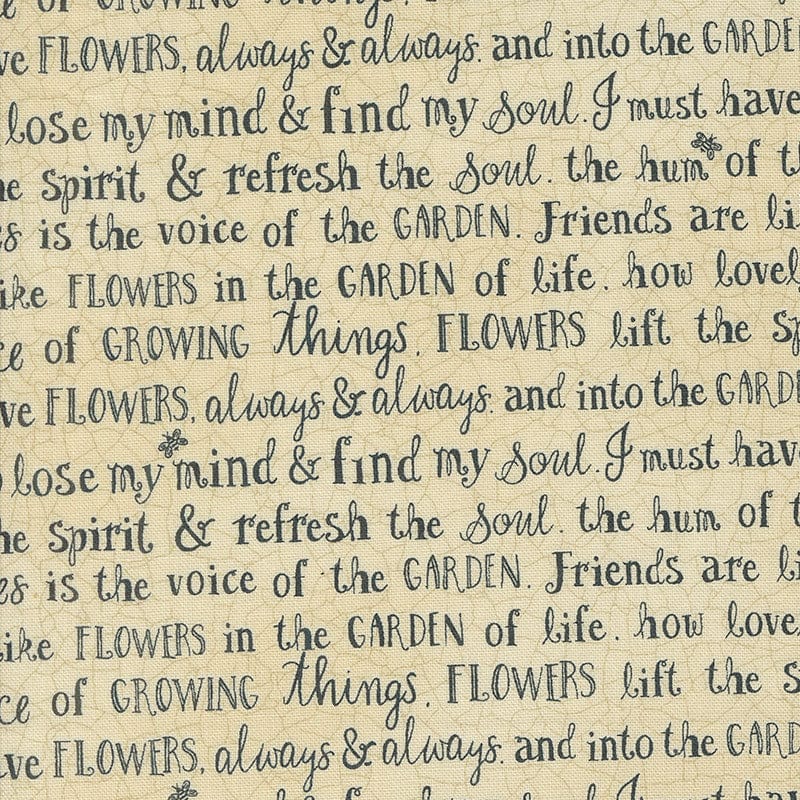 of GROWING things.
FLOWERS, always & always. and into the
lose my mind & find my soul. I must have
spirit & refresh the soul. the hum of
is the voice of the GARDEN. Friends are
FLOWERS in the GARDEN of life. how
of GROWING things. FLOWERS lift the
FLOWERS, always & always. and into the
lose my mind & find my soul. I must
spirit & refresh the soul. the hum of
is the voice of the GARDEN. Friends are
FLOWERS in the GARDEN of life. how
of GROWING things. FLOWERS lift the
FLOWERS, always & always. and into the